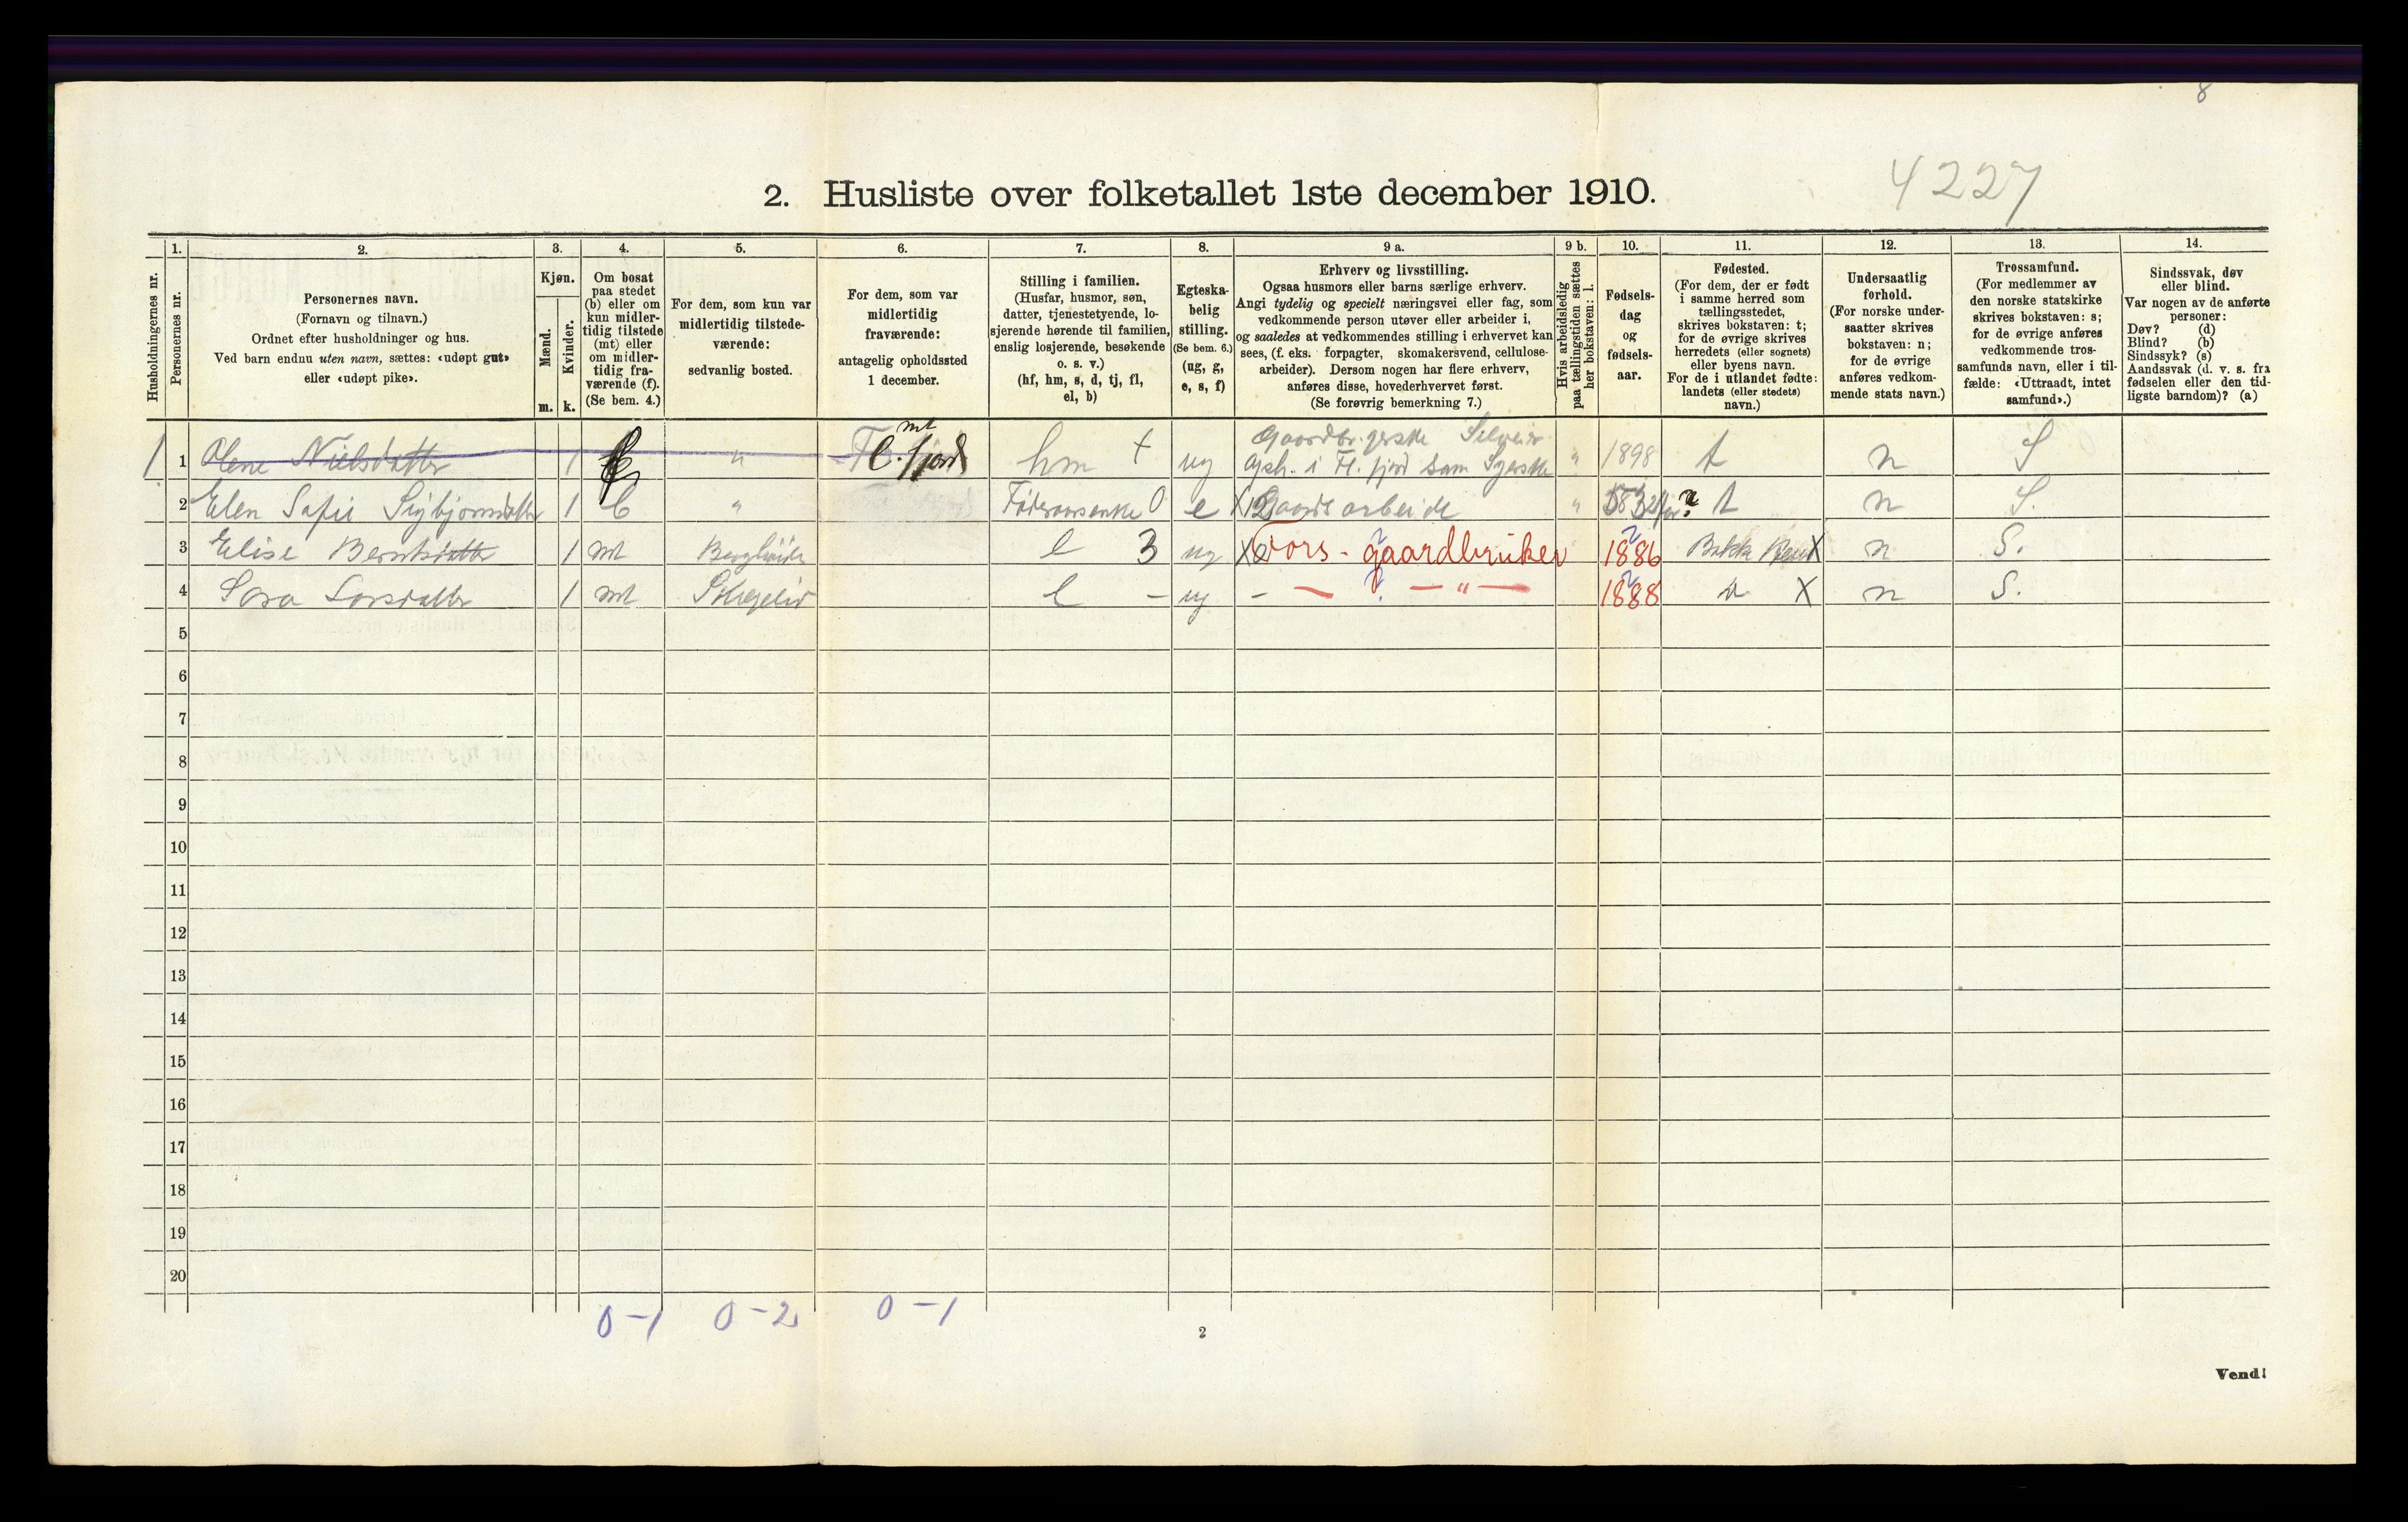 8
4227
2. Husliste over folketallet 1ste december 1910.
Husholdningernes nr.
1.
Personernes nr.
2.
Personernes navn.
(Fornavn og tilnavn.)
Ordnet efter husholdninger og hus.
Ved barn endnu uten navn, sættes: «udøpt gut»
eller «udøpt pike».
3.
Kjøn.
Mænd.
Kvinder.
m. k.
4.
Om bosat
paa stedet
(b) eller om
kun midler-
tidig tilstede
(mt) eller
om midler-
tidig fra-
værende (f).
(Se bem. 4.)
5.
For dem, som kun var
midlertidig tilstede-
værende:
sedvanlig bosted.
6.
For dem, som var
midlertidig
fraværende:
antagelig opholdssted
1 december.
7.
Stilling i familien.
(Husfar, husmor, søn,
datter, tjenestetyende, lo-
sjerende hørende til familien,
enslig losjerende, besøkende
o. s. v.)
(hf, hm, s, d, tj, fl,
el, b)
8.
Egteska-
belig
stilling.
(Se bem. 6.)
(ug, g,
e, s, f)
9 a.
Erhverv og livsstilling.
Ogsaa husmors eller barns særlige erhverv.
Angi tydelig og specielt næringsvei eller fag, som
vedkommende person utøver eller arbeider i,
og saaledes at vedkommendes stilling i erhvervet kan
sees, (f. eks. forpagter, skomakersvend, cellulose-
arbeider). Dersom nogen har flere erhverv,
anføres disse, hovederhvervet først.
(Se forøvrig bemerkning 7.)
9 b.
Hvis arbeidsledig
paa tællingstiden sættes
her bokstaven: l.
10.
Fødsels-
dag
og
fødsels-
aar.
11.
Fødested.
(For dem, der er født
i samme herred som
tællingsstedet,
skrives bokstaven: t;
for de øvrige skrives
herredets (eller sognets)
eller byens navn.
For de i utlandet fødte:
landets (eller stedets)
navn.)
12.
Undersaatlig
forhold.
(For norske under-
saatter skrives
bokstaven: n;
for de øvrige
anføres vedkom-
mende stats navn.)
13.
Trossamfund.
(For medlemmer av
den norske statskirke
skrives bokstaven: s;
for de øvrige anføres
vedkommende tros-
samfunds navn, eller i til-
fælde: «Uttraadt, intet
samfund».)
14.
Sindssvak, døv
eller blind.
Var nogen av de anførte
personer:
Døv? (d)
Blind? (b)
Sindssyk? (s)
Aandssvak (d. v. s. fra
fødselen eller den tid-
ligste barndom)? (a)
1 1 Olene Nielsdatter 1 " mt fjord hm + ug 1898 t n S
2 Elen Safie 1 b " 0 e Gaardsarbeide " t n S.
3 Elise Berntsdatter 1 mt l 3 ug Fors-gaardbruker 1886 X n S.
4 Sara Larsdatter 1 mt l - ug - — " — 1888 X n S.
5
6
7
8
9
10
11
12
13
14
15
16
17
18
19
20
0-1 0-2 0-1
2
Vend!